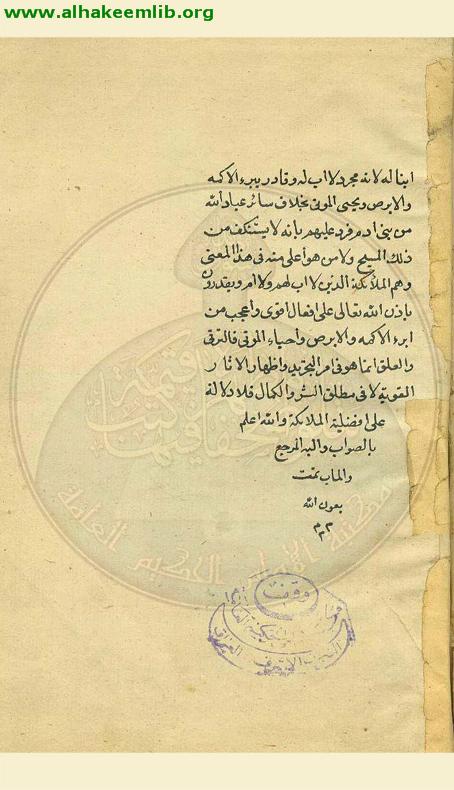 www.alhakeemlib.org
ابنا له لانه مجرد لا اب له وقادر يبرء الاكمه
والابرص ويحيى الموتى بخلاف سائر عباد الله
من بنى ادم فرد عليهم بانه لا يستنكف من
ذلك المسيح ولا من هو أعلى منه فى هذا المعنى
وهم الملائكة الذين لا اب لهم ولا ام ويقدرون
باذن الله تعالى على افعال أقوى وأعجب من
ابرء الاكمه والابرص وأحياء الموتى فالترقى
والعلو انما هو فى امر التجريد واظهار الاثار
القوية لا فى مطلق الشرف والكمال فلا دلالة
على افضلية الملائكة والله اعلم
بالصواب واليه المرجع
والماب تمت
بعون الله
م م م
وقف